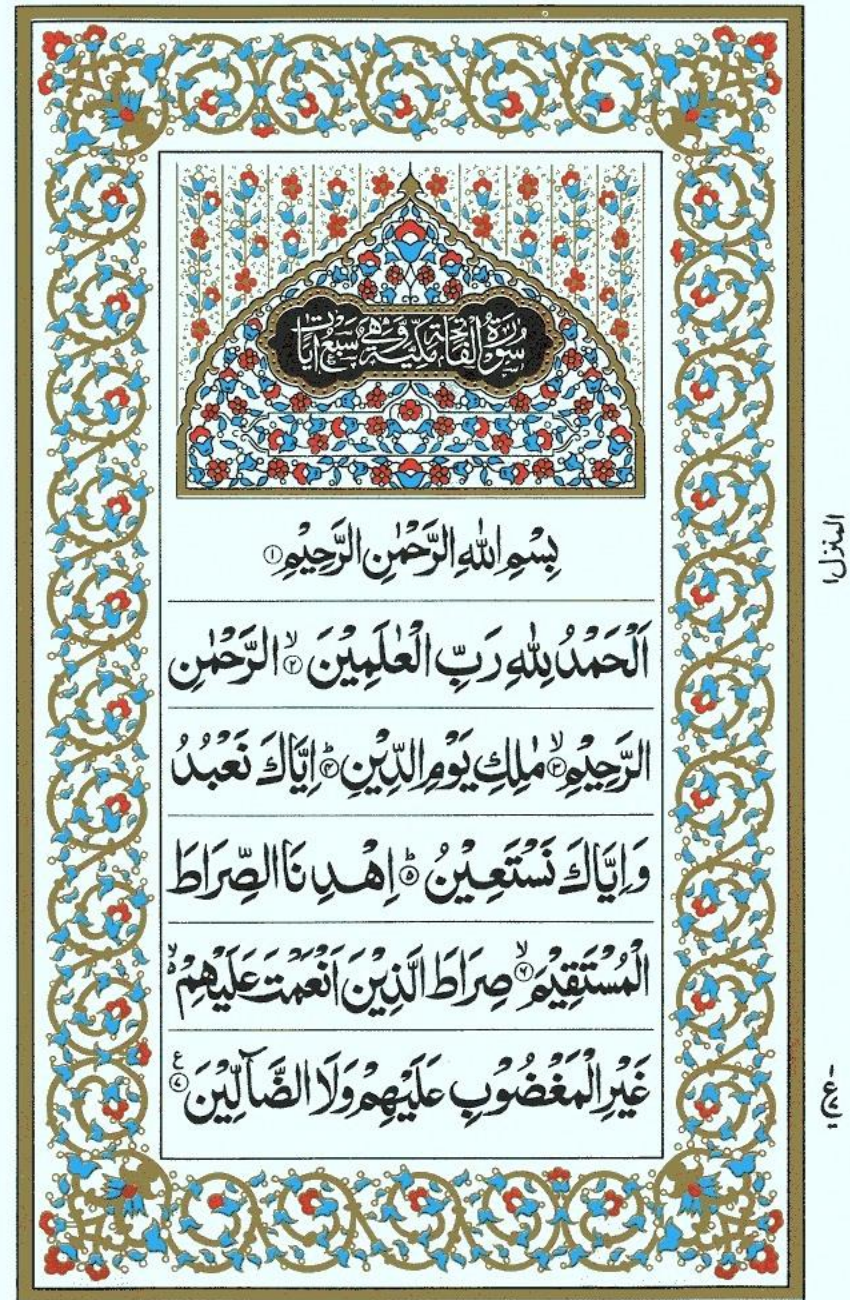 سُوْرَةُ الْفَاتِحَةِ مَكِّيَّةٌ وَّهِيَ سَبْعُ اٰيَاتٍ
بِسْمِ اللّٰهِ الرَّحْمٰنِ الرَّحِيْمِ ۝۱
اَلْحَمْدُ لِلّٰهِ رَبِّ الْعٰلَمِيْنَ ۙ۝۲ الرَّحْمٰنِ
الرَّحِيْمِ ۙ۝۳ مٰلِكِ يَوْمِ الدِّيْنِ ؕ۝۴ اِيَّاكَ نَعْبُدُ
وَاِيَّاكَ نَسْتَعِيْنُ ؕ۝۵ اِهْدِنَا الصِّرَاطَ
الْمُسْتَقِيْمَ ۙ۝۶ صِرَاطَ الَّذِيْنَ اَنْعَمْتَ عَلَيْهِمْ ۙ۵
غَيْرِ الْمَغْضُوْبِ عَلَيْهِمْ وَلَا الضَّآلِّيْنَ ۝۷ ع
المنزل ۱